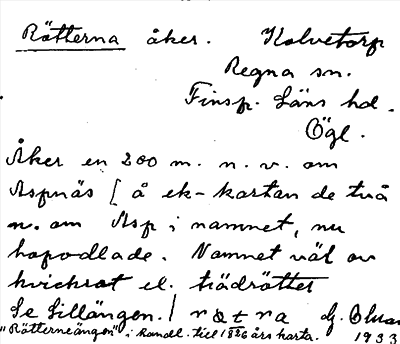 Rötterna åker. Kolvetorp
Regna sn.
Finsp. Läns hd.
Ögl.
Åker en 200 m. n. v. om
Aspnäs [ å ek-kartan de två
n. om Asp i namnet, nu
hopodlade. Namnet väl av
kvickrot el. trädrötter
Se Lillängen. / r
"Rötterneängen" i handl. till 1826 års karta. 1933